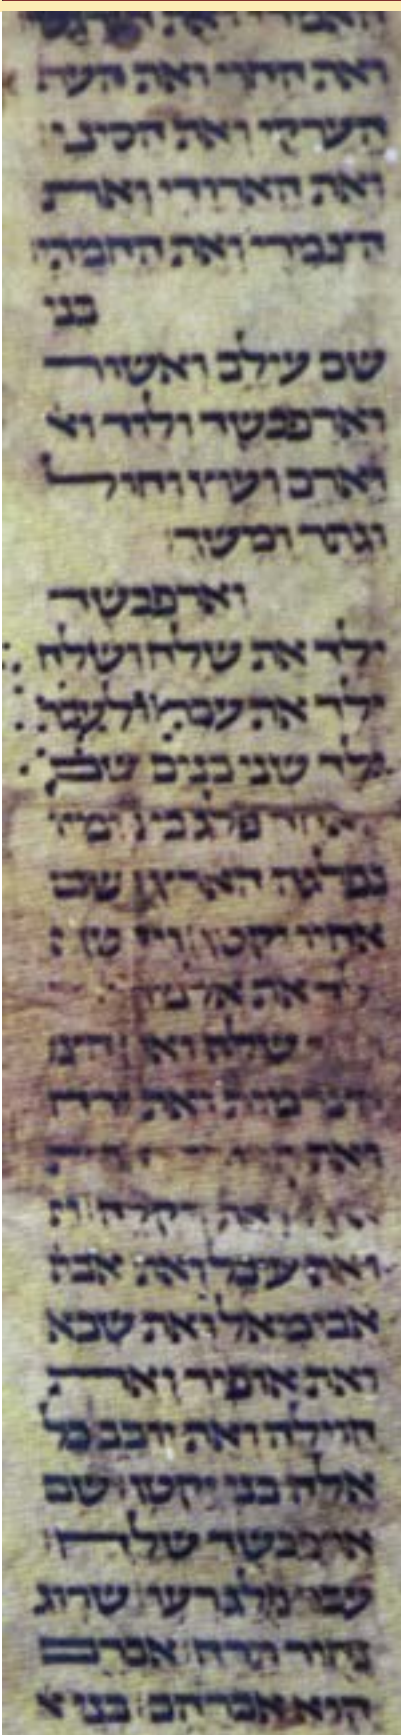 האמרי ואת הגרגשי
ואת החוי ואת הער
הערקי ואת הסיני
ואת הארודי ואת
הצמרי ואת החמתי
בני
שם עילם ואשור
וארפכשד ולוד וא
וארם ועוץ וחול
וגתר ומשך
וארפכשד
ילד את שלח ושלח
ילד את עבר ולעבר
ילד שני בנים שם
האחד פלג כי בימיו
נפלגה הארץ ושם
אחיו יקטן
ילד את אלמודד
שלף ואת חצ
חצרמות ואת ירח
ואת
ואת דקלה
ואת עיבל ואת אבי
אבימאל ואת שבא
ואת אופיר ואת
חוילה ואת יובב כל
אלה בני יקטן שם
ארפכשד שלח
עבר פלג רעו שרוג
נחור תרח אברם
הוא אברהם בני א